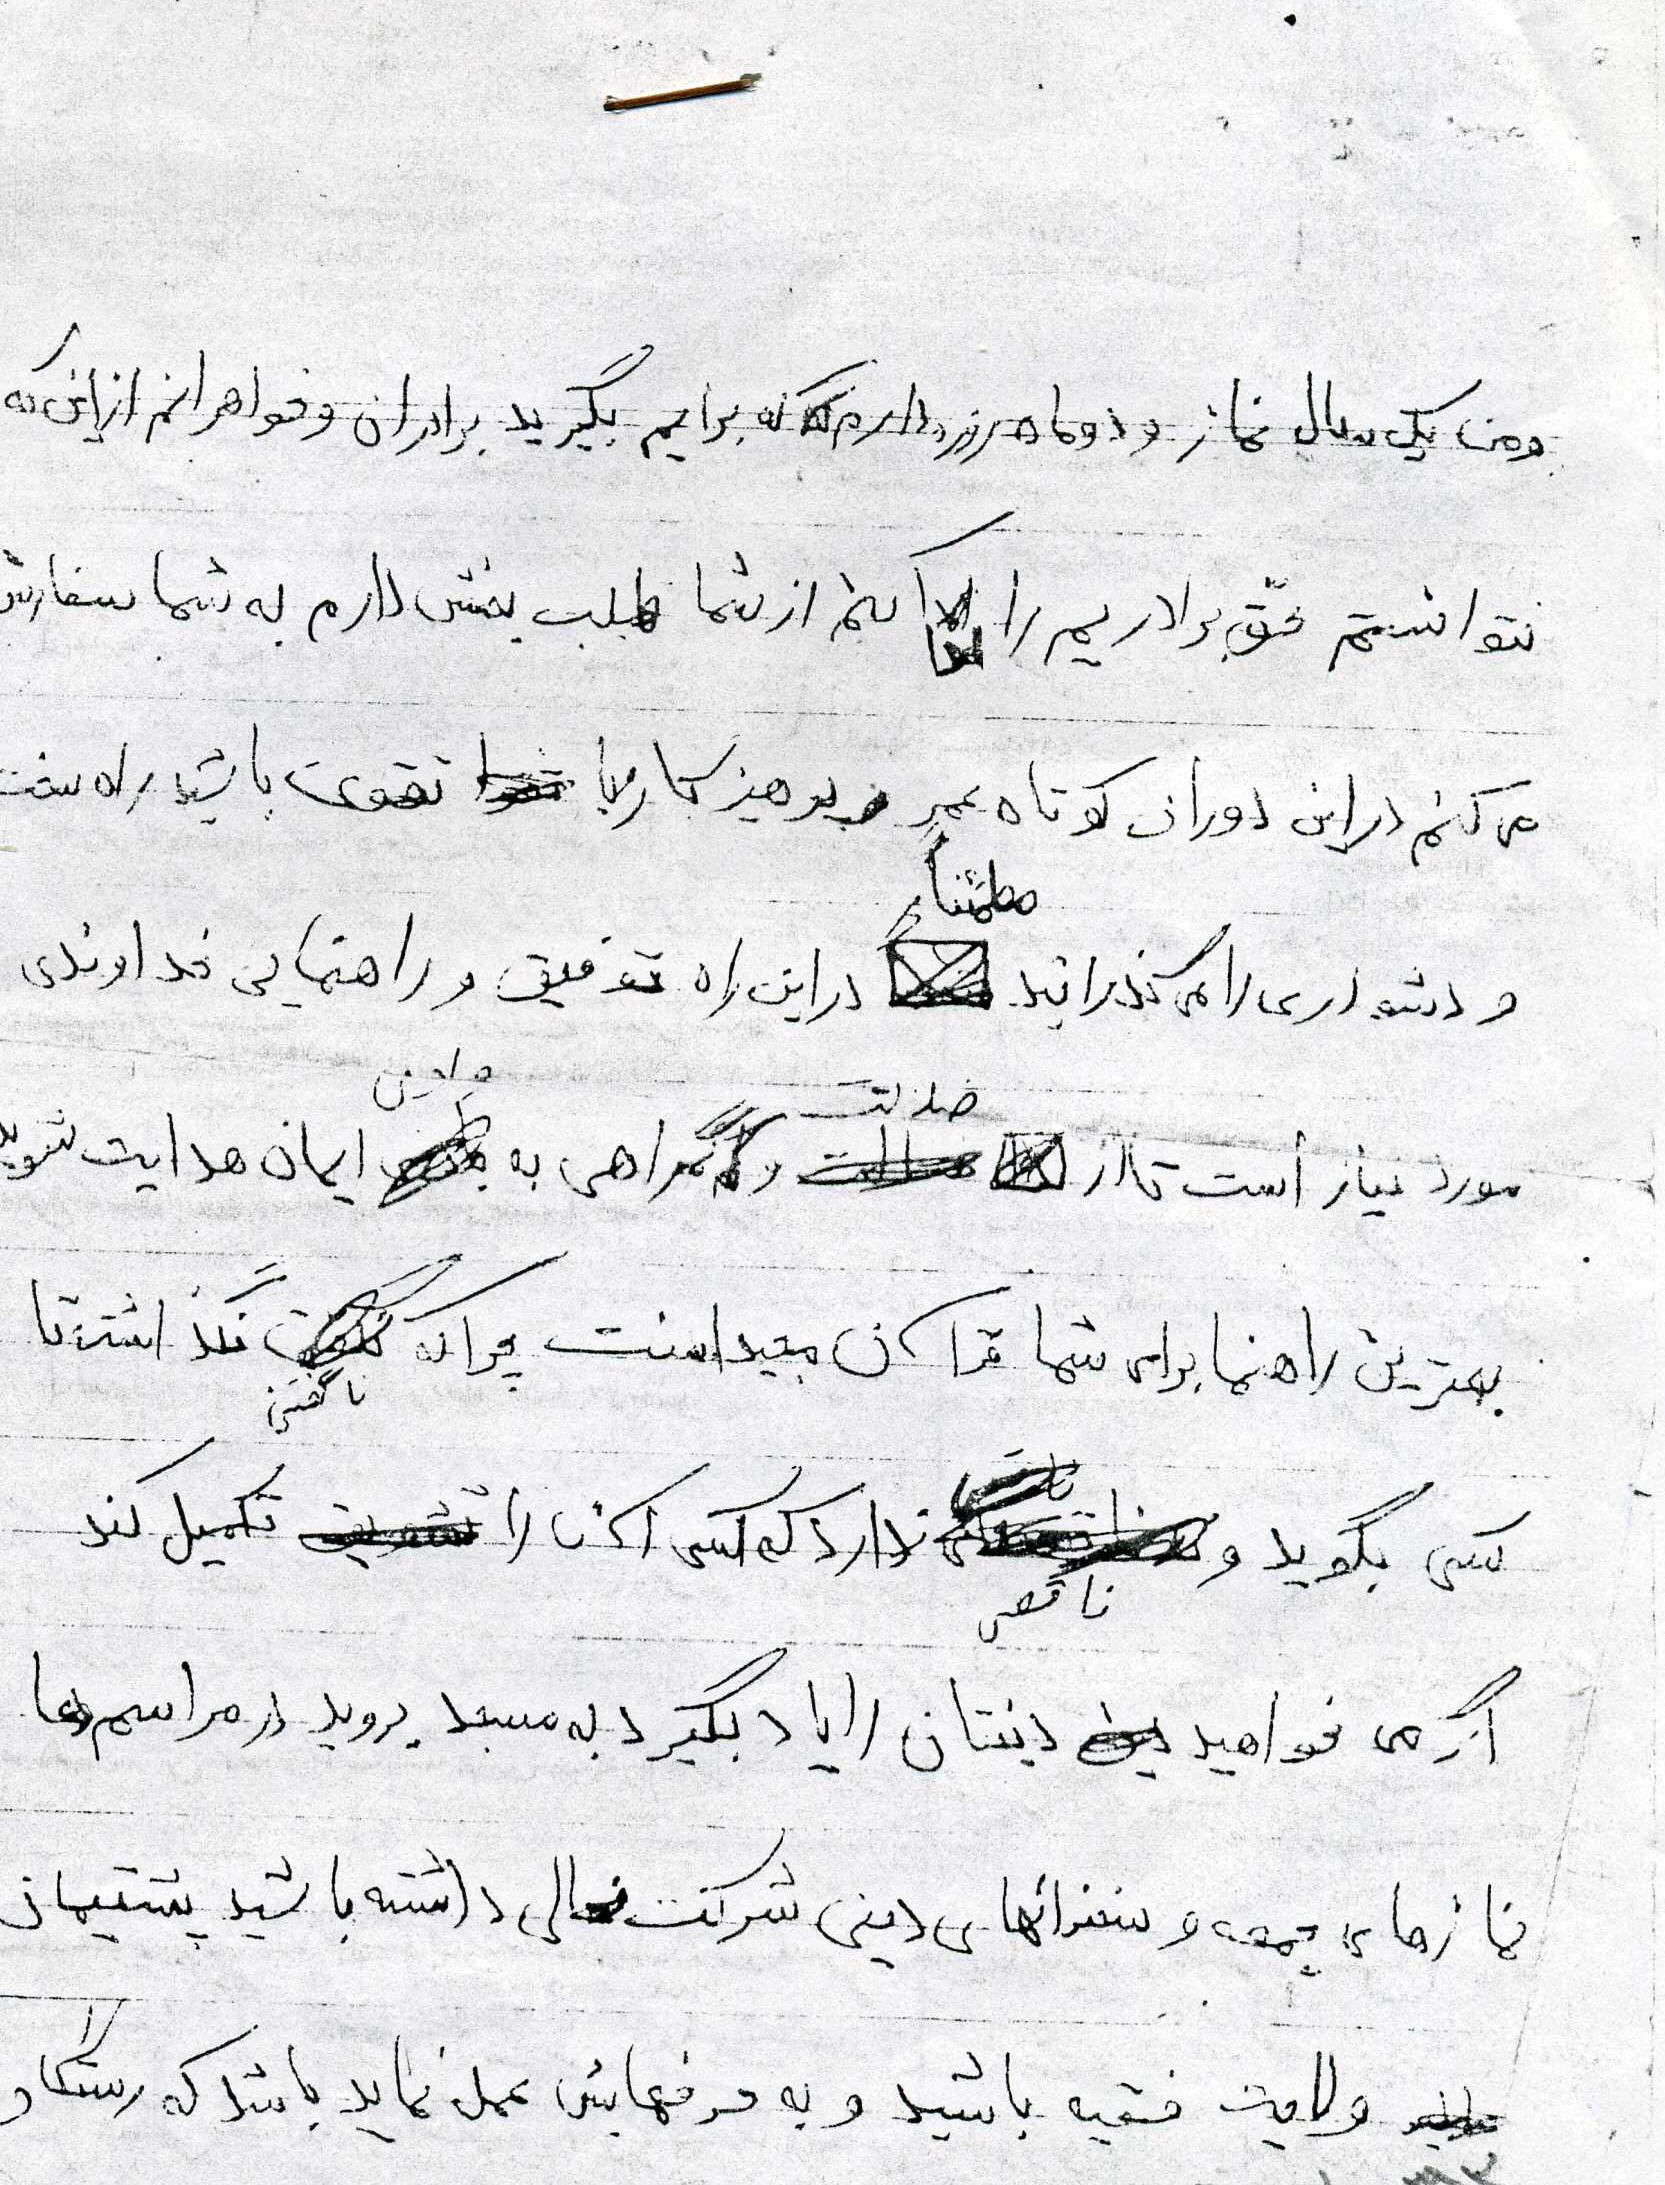 ومن یک سال نماز و دوماه روزه دارم که برایم بگیرید برادران وخواهرانم ازاین که
نتوانستم حقّ برادریم را ادا کنم از شما طلب بخشش دارم به شما سفارش
می کنم دراین دوران کوتاه عمر پرهیزکار و با تقوی باشید راه سخت
و دشواری را می گذرانید مطمئناً دراین راه توفیق و راهنمایی خداوندی
مورد نیاز است تا از ضلالت و گمراهی به ایمان هدایت شوید
بهترین راهنما برای شما قرآن مجید است چرا که ناگفتنی نگذاشته تا
کسی بگوید و ناقصی ندارد که کسی آن را تکمیل کند
اگر می خواهید دینتان را یاد بگیرد به مسجد بروید در مراسم دعا
نمازهای جمعه و سخنرانیهای دینی شرکت فعالی داشته باشید پشتیبان
ولایت فقیه باشید و به حرفهایش عمل نماید باشد که رستگار